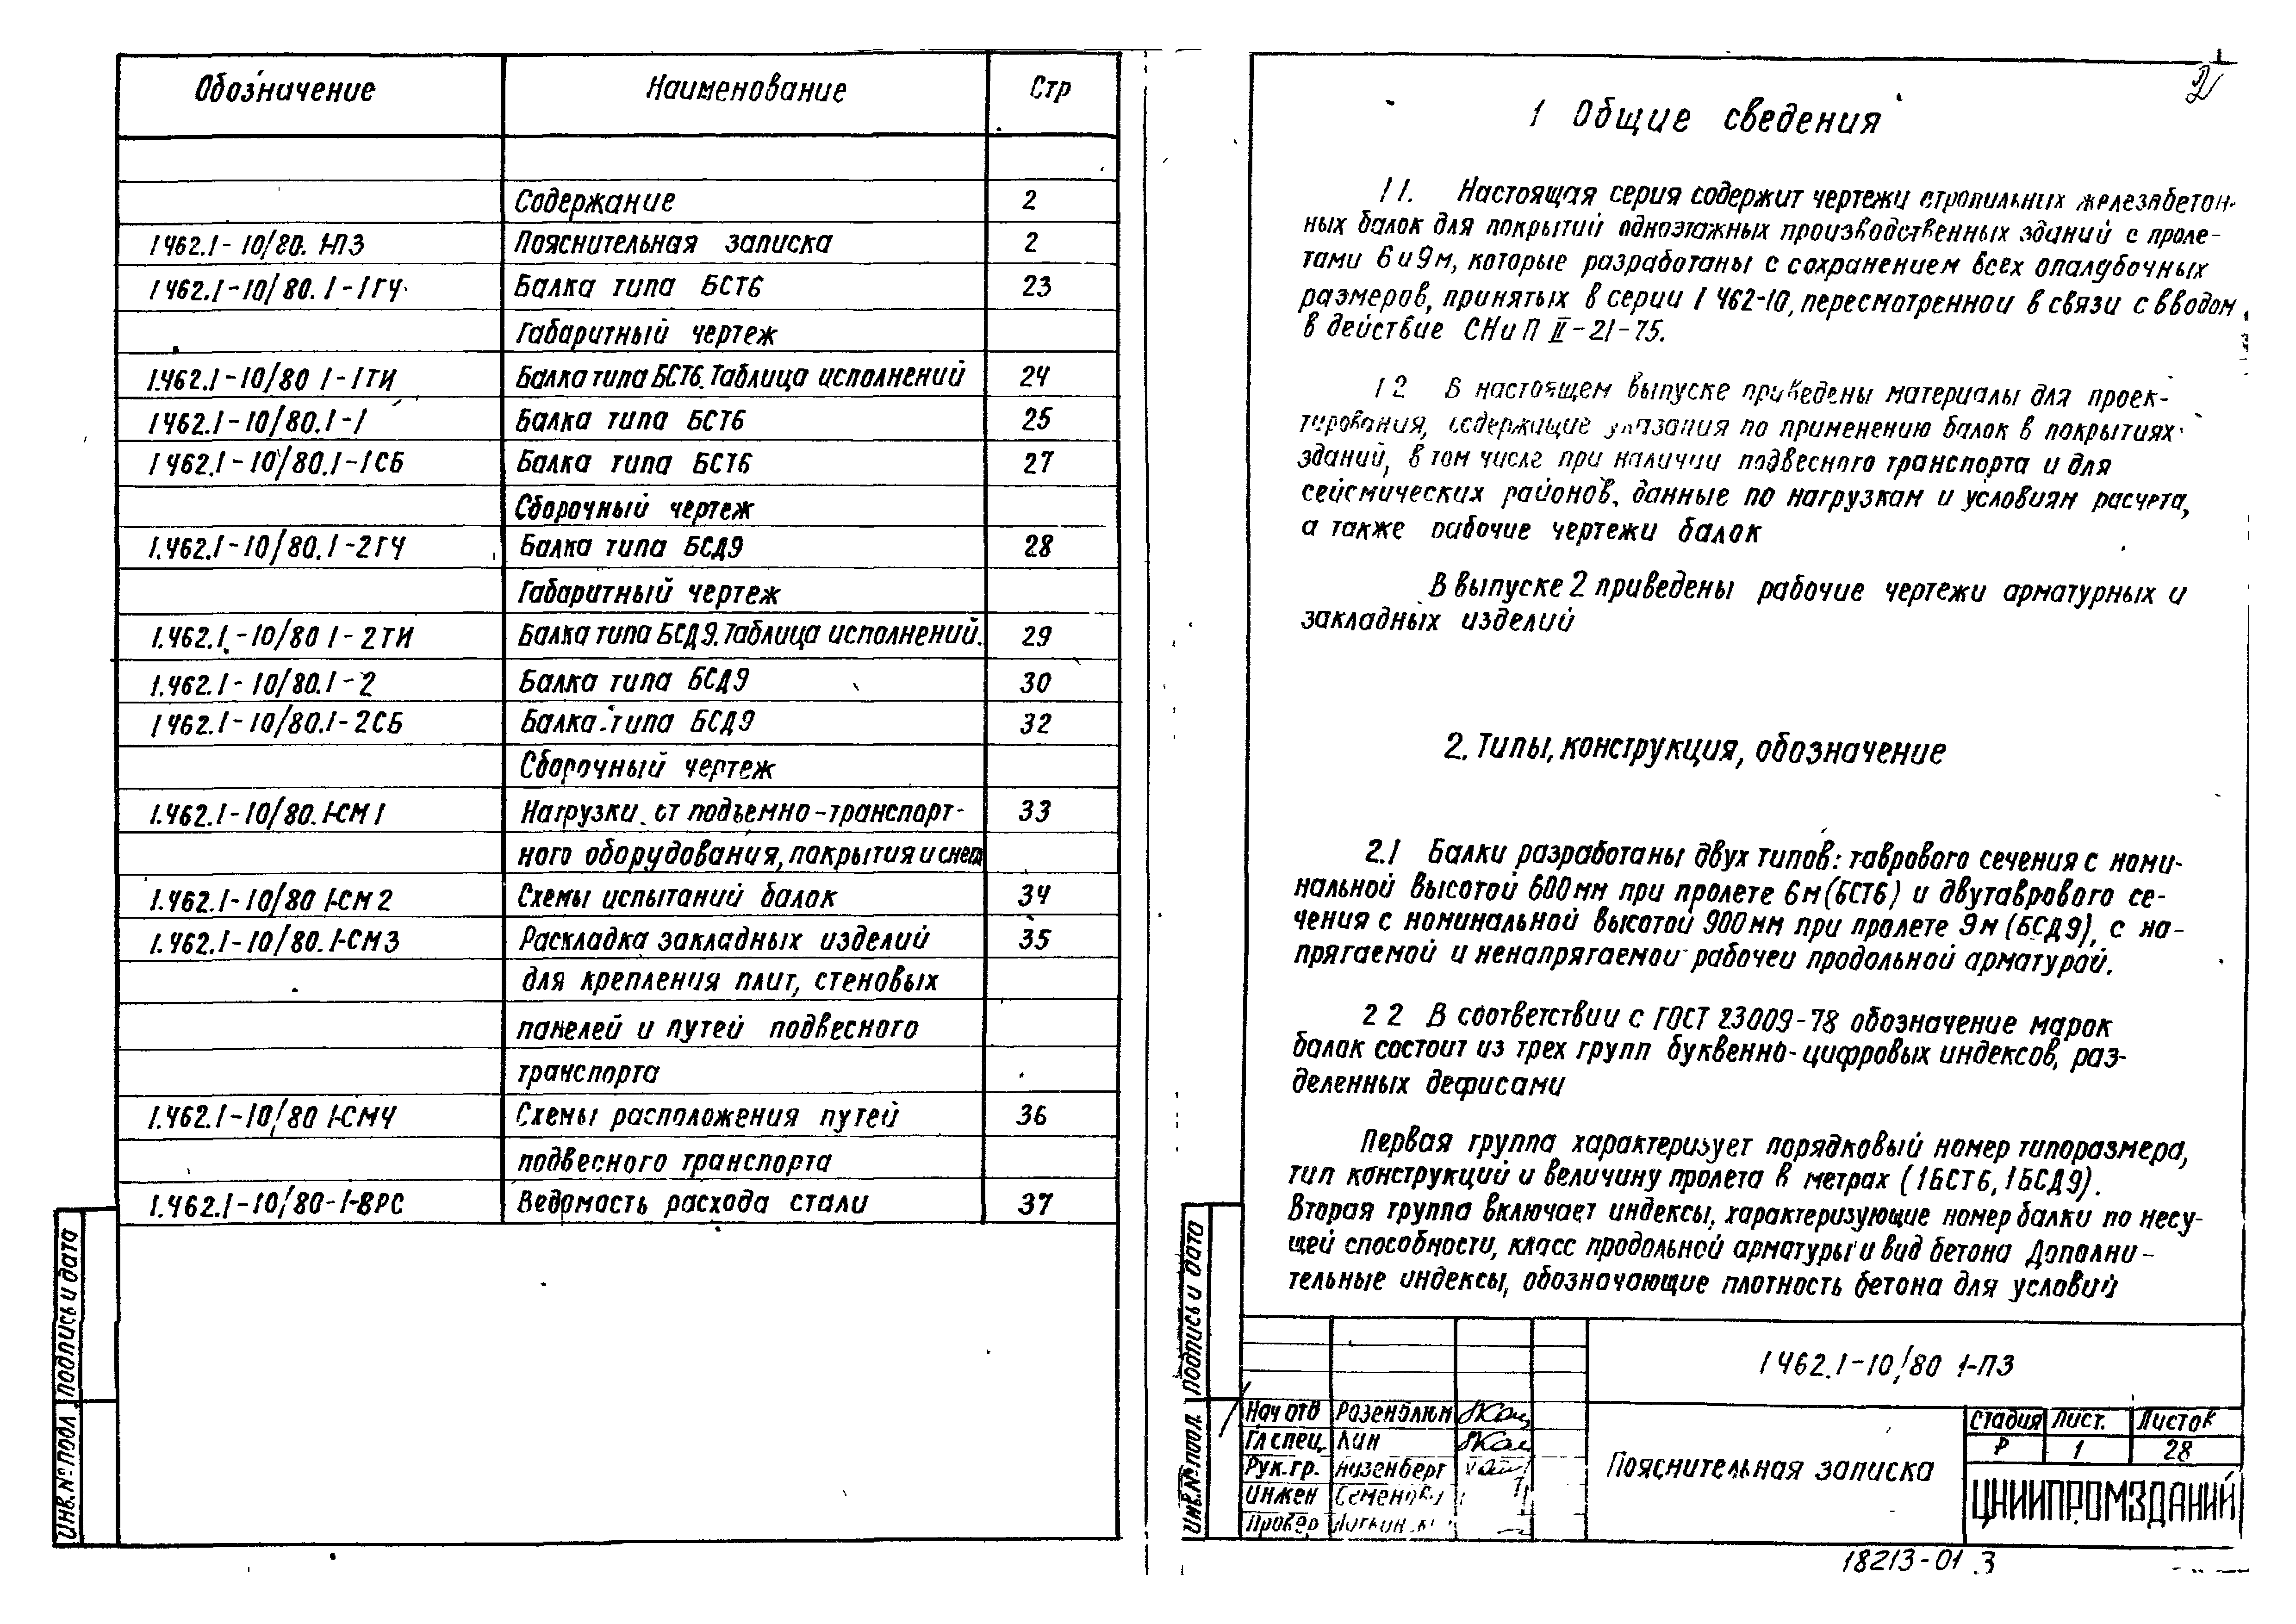 Обозначение Наименование Стр
Содержание 2
1462.1-10/80. 1-ПЗ Пояснительная записка 2
1462.1-10/80. 1-1ГЧ Балка типа БСТ6 23
Габаритный чертеж
1.462.1-10/80 1-1ТИ Балка типа БСТ6. Таблица исполнений 24
1462.1-10/80.1-1 Балка типа БСТ6 25
1462.1-10/80.1-1СБ Балка типа БСТ6 27
Сборочный чертеж
1.462.1-10/80.1-2ГЧ Балка типа БСД9 28
Габаритный чертеж
1.462.1-10/80 1-2ТИ Балка типа БСД9. Таблица исполнений. 29
1.462.1-10/80.1-2 Балка типа БСД9 30
1462.1-10/80.1-2СБ Балка типа БСД9 32
Сборочный чертеж
1.462.1-10/80.1-СМ1 Нагрузки от подъемно-транспорт- 33
ного оборудования, покрытия и снега
1.462.1-10/80 1-СМ2 Схемы испытаний балок 34
1.462.1-10/80.1-СМ3 Раскладка закладных изделий 35
для крепления плит, стеновых
панелей и путей подвесного
транспорта
1.462.1-10/80 1-СМ4 Схемы расположения путей 36
подвесного транспорта
1.462.1-10/80-1-ВРС Ведомость расхода стали 37
Инв.№ подл подпись и дата
2
1 Общие сведения
11. Настоящая серия содержит чертежи стропильных железобетон-
ных балок для покрытий одноэтажных производственных зданий с проле-
тами 6 и 9м, которые разработаны с сохранением всех опалубочных
размеров, принятых в серии 1 462-10, пересмотренной в связи с вводом
в действие СНиП II-21-75.
12 В настоящем выпуске приведены материалы для проек-
тирования, содержащие указания по применению балок в покрытиях
зданий, в том числе при наличии подвесного транспорта и для
сейсмических районов, данные по нагрузкам и условиям расчета,
а также рабочие чертежи балок
В выпуске 2 приведены рабочие чертежи арматурных и
закладных изделий
2. Типы, конструкция, обозначение
2.1 Балки разработаны двух типов: таврового сечения с номи-
нальной высотой 600мм при пролете 6м (БСТ6) и двутаврового се-
чения с номинальной высотой 900мм при пролете 9м (БСД9), с на-
прягаемой и ненапрягаемой рабочей продольной арматурой.
22 В соответствии с ГОСТ 23009-78 обозначение марок
балок состоит из трех групп буквенно-цифровых индексов, раз-
деленных дефисами
Первая группа характеризует порядковый номер типоразмера,
тип конструкций и величину пролета в метрах (1БСТ6, 1БСД9).
Вторая группа включает индексы, характеризующие номер балки по несу-
щей способности, класс продольной арматуры и вид бетона Дополни-
тельные индексы, обозначающие плотность бетона для условий
Инв.№ подл. подпись и дата
1462.1-10/80 1-ПЗ
Нач отд Розенблюм
Гл спец. Лин
Рук.гр.
Инжен
Провер
Пояснительная записка
Стадия Лист. Листов
Р 1 28
ЦНИИПРОМЗДАНИЙ
18213-01 3